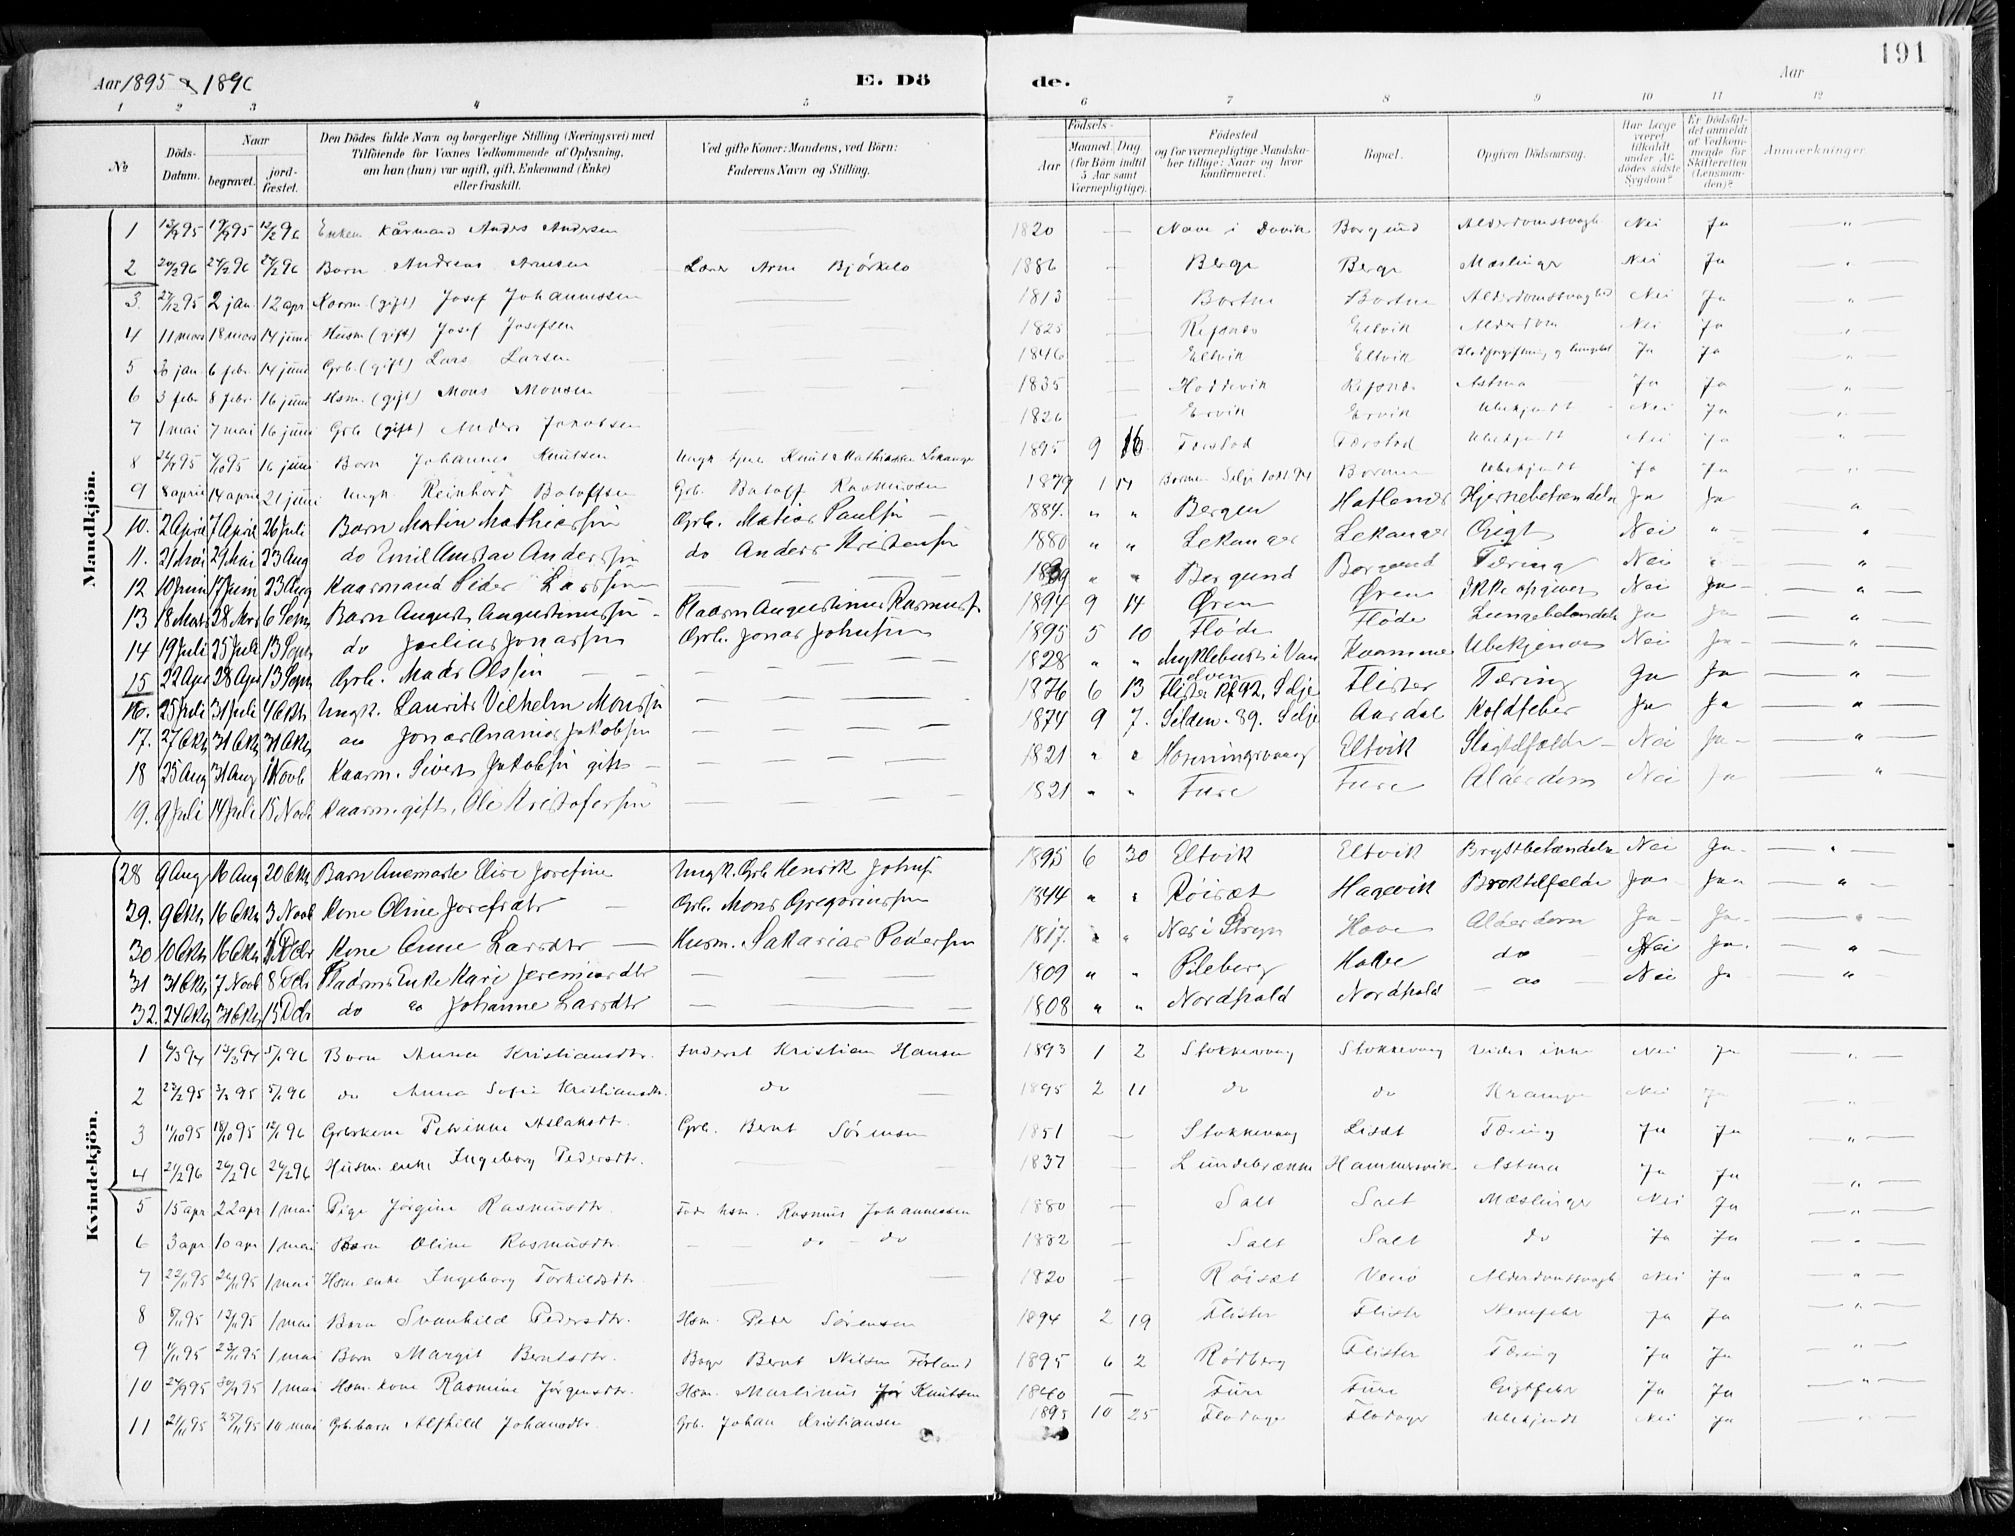 191
Aar 1895 - 1896 E. Döde. Aar
1 2 3 4 5 6 7 8 9 10 11 12
No Döds-Datum. Naar begravet. jordfæstet. Den Dödes fulde Navn og borgerlige Stilling (Næringsvei) med Tilföiende for Voxnes Vedkommende af Oplysning, om han (hun) var ugift, gift, Enkemand (Enke) eller fraskilt. Ved gifte Koner: Mandens, ved Börn: Faderens Navn og Stilling. Födsels- Aar Maaned Dag (for Börn indtil 5 Aar samt Værnepligtige). Födested og for værnepligtige Mandskaber tillige: Naar og hvor konfirmeret. Bopæl. Opgiven Dödsaarsag. Har Læge været tilkaldt under Afdödes sidste Sygdom? Er Dödsfaldet anmeldt af Vedkommende for Skifteretten (Lensmanden)? Anmærkninger
Mandkjön.
1 13/9 95 19/9 95 12/2 96 Enkem Kårmand Anders Andersen 1820 Nave i Davik Borgund Alderdomssvagh Nei Ja
2 20/2 96 27/2 96 27/2 96 Barn Andreas Arnesen Lærer Arne Bjørkelo 1886 Berge Berge Mæslinger Nei Ja
3 27/12 95 2 jan 12 apr Kaarm (gift) Josef Johannessen 1813 Bortne Bortne Alderdomssvaghed Nei Ja
4 11 mars 18 mars 14 juni Husm (gift) Josef Josefsen 1825 Refsnes Eltvik Alderdom Nei Ja
5 30 jan 6 febr 14 juni Grb. (gift) Lars Larsen 1846 Eltvik Eltvik Blodforgiftning og lungebet Ja Ja
6 3 febr 8 febr 16 juni Hsm. (gift) Mons Monsen 1835 Hoddevik Refsnes Astma Ja Ja
7 1 mai 7 mai 16 juni Grb (gift) Anders Jakobsen 1826 Ervik Ervik Ubekjendt Nei Ja
8 24/9 95 1/10 95 16 juni Barn Johannes Knutsen Ungk. Knut Mathiassen Lekanger 1895 9 16 Færstad Færstad Ubekjendt Nei Ja
9 8 april 14 april 21 juni Ungk. Reinhard Batolfsen Grb. Batolf Rasmussen 1879 1 14 Barmen Selje Barmen Ubekjendt Ja Ja
10. 2 April 7 April 26 Juli Barn Martin Mathiassen Grb. Matias Paulsen 1884. Bergen Hatlenes Hjernebetændelse Ja Ja
11. 21 Mai 29 Mai 23 Aug do Emil Gustav Anderssen do Anders Kristensen 1880 Lekanger Lekanger Gigt Nei
12 10 Juni 17 Juni 23 Aug Kaarmand Peder Larssen Bergund Borgund Tæring Nei
13 18 Mars 28 Mrs 6 Septr Barn August Augustinussen Kaarm Augustinus Rasmuss. 1894 9 14 Øren Øren Ikke opgiven Nei Ja
14 19 Juli 25 Juli 13 Septr do Julius Jonassen Grb. Jonas Johnsen 1895 5 10 Fløde Fløde Lungebetændelse Ja Ja
15 22 Apr 28 Apr 13 Septr Grb. Mads Olssen 1828 Myklebust i Vanelven Ubekjendt Nei Ja
16. 25 Juli 31 Juli 4 Okt Ungk. Laurits Vilhelm Monssen 1876 6 13 Flister Kf 92. Selje Flister Tæring Ja Ja
17. 27 Okt 31 Okt 31 Okt do Jonas Ananias Jakobsen 1874 9 7. Silden. 89. Selje Aardal Koldfeber Ja Ja
18 25 Aug 31 Aug 1 Novb Kaarm. Sivert Jakobsen gift 1821 Horningsvaag Eltvik Slagtilfælde Nei Ja
19. 9 Juli 14 Juli 15 Novb Kaarm. gift. Ole Kristofersen 1821 Fure Fure Alderdom Nei Ja
28 9 Aug 16 Aug 20 Okt Barn Anemarte Elise Josefine Ungk. Grb Henrik Johns. 1895 6 30 Eltvik Eltvik Brystbetændelse Nei Ja
29. 9 Okt 16 Okt 3 Novb Kone Oline Josefsdtr Grb. Mons Gregoriussen 1844 Røiset Hagevik Broktilfælde Ja Ja
30 10 Okt 16 Okt Decbr Kone Anne Larsdtr Husm. Sakarias Pedersen 1817. Nes i Stryn Hove Alderdom Ja Ja
31 31 Okt 7 Novb 8 Decbr Kaarms Enke Kari Jeremiasdtr 1809 Pileberg Hove do Nei Ja
32. 24 Okt 31 Okt 15 Decbr do do Johanne Larsdtr 1808 Nordpold Nordpold do Nei Ja
Kvindekjön.
1 6/3 94 13/3 94 5/1 96 Barn Anna Kristiansdtr. Inderst Kristian Hansen 1893 1 2 Stokkevaag Stokkevaag Vides ikke Nei Ja
2 23/2 95 3/3 95 5/1 96 do Anna Sofie Kristiansdtr. do 1895 2 11 do do Krampe Nei Ja
3 11/10 95 18/10 95 12/1 96 Grbrkone Petrikke Aslaksdtr. Grb. Bernt Sørensen 1851 Stokkevaag Liset Tæring Ja Ja
4 21/2 96 26/2 96 26/2 96 Husm. enke Ingeborg Pedersdtr. 1837 Lundebrekke Hammersvik Astma Ja Ja
5 15 apr 22 apr 1 mai Pige Jørgine Rasmusdtr. Fader hsm. Rasmus Johannessen 1880 Salt Salt Mæslinger Nei Ja
6 3 apr 10 apr 1 mai Barn Oline Rasmusdtr. do do 1882 Salt Salt do Ja Ja
7 22/11 95 26/11 95 1 mai Hsm. enke Ingeborg Torkildsdtr. 1820 Røiset Venø Alderdomssvagh Nei Ja
8 8/11 95 13/11 95 1 mai Barn Svanhild Pedersdtr. Hsm. Peder Sørensen 1894 2 19 Flister Flister Nervefeber Ja Ja
9 1/11 95 23/11 95 1 mai Barn Margit Berntsdtr. Bager Bernt Nilsen Førland 1895 6 2 Rødberg Flister Tæring Ja Ja
10 24/9 95 30/9 95 1 mai Hsm. kone Rasmine Jørgensdtr. Hsm. Martinus Knutsen 1840 Fure Fure Gigtfeber Ja Ja
11 21/11 95 25/11 95 10 mai Grb. barn Alfhild Johansdtr. Grb. Johan Kristiansen 1895 10 25 Flodager Flodager Ubekjendt Nei Ja